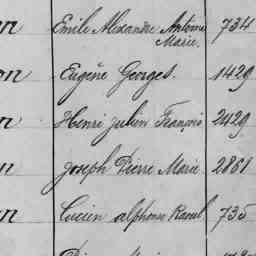 Emile Alexandre Antoine 734
Marie.
Eugène Georges. 1429
Henri Julien François 2429
Joseph Pierre Marie 2861
Lucien Alphonse Raoul 735